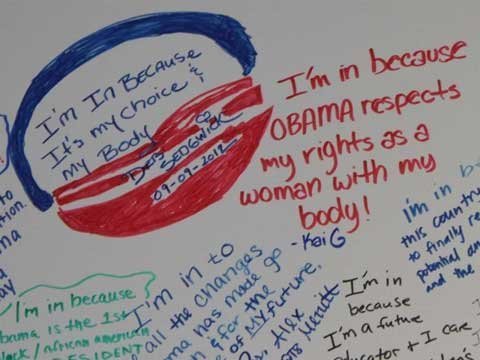 I'm In Because
It's my Choice &
my Body
SEDGWICK
09-09-2012
I'm in because
OBAMA respects
my rights as a
woman with my
body!
- Kai G
to
tion.
ma
d
ay
I'm in because
Obama is the 1st
black/african american
PRESIDENT
I'm in to
all the changes
Obama has made go
& for the
of my future.
Dr. Alex
Merritt
I'm in
because
I'm a future
educator & I care
I'm in b
this country
to finally re
potential an
and the